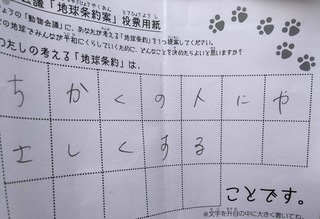 議「地球条約案」投票用紙
の「動物会議」に、あなたが考える「地球条約」を1つ提案してください。
の地球でみんなが平和にくらしていくために、どんなことを決めたらよいと思いますか?
たしの考える「地球条約」は、
ちかくの人にや
さしくする
ことです。
※文字を升目の中に大きく書いてね。